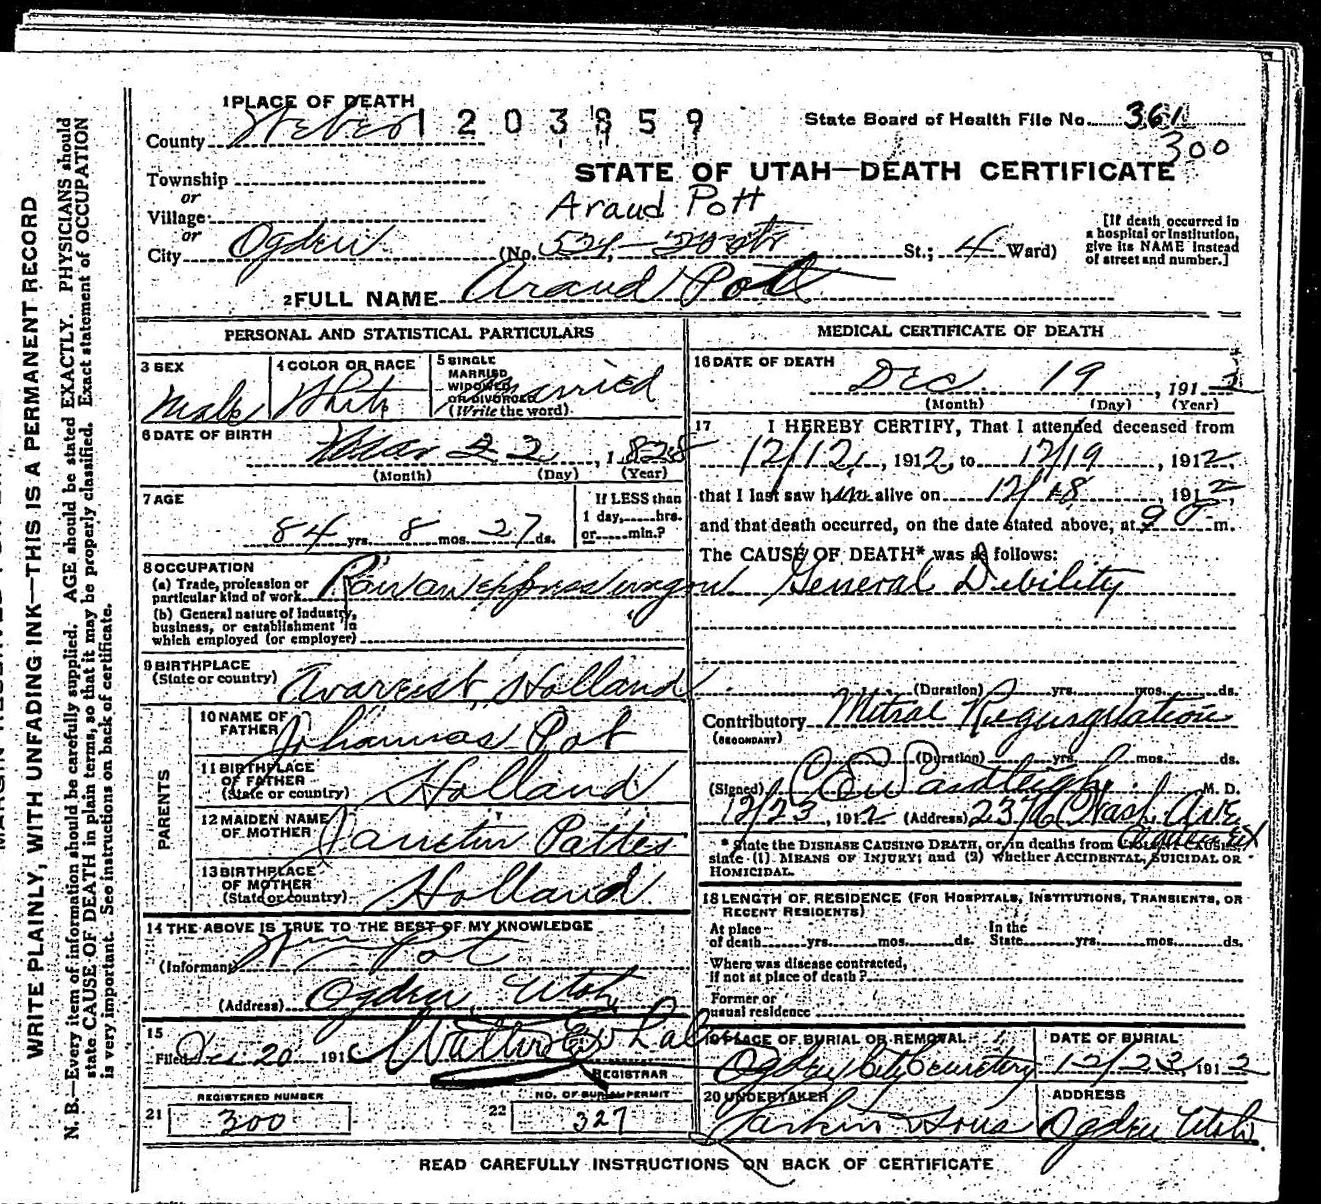 1 PLACE OF DEATH
1203859
State Board of Health File No. 361
300
County Weber
STATE OF UTAH—DEATH CERTIFICATE
Township
or
Village
Araud Pott
or
City Ogden (No. 524 - 20 str St.; 4 Ward)
[If death occurred in
a hospital or institution,
give its NAME instead
of street and number.]
2 FULL NAME Araud Pott
PERSONAL AND STATISTICAL PARTICULARS
3 SEX
Male
4 COLOR OR RACE
White
5 SINGLE
MARRIED
WIDOWED
OR DIVORCED
(Write the word)
Married
6 DATE OF BIRTH
Mar 22, 1828
(Month) (Day) (Year)
7 AGE
84 yrs. 8 mos. 27 ds.
If LESS than
1 day,.....hrs.
or.....min.?
8 OCCUPATION
(a) Trade, profession or
particular kind of work Ran an express wagon
(b) General nature of industry,
business, or establishment in
which employed (or employer)
9 BIRTHPLACE
(State or country) Holland
PARENTS
10 NAME OF
FATHER Johannas Pot
11 BIRTHPLACE
OF FATHER
(State or country) Holland
12 MAIDEN NAME
OF MOTHER
13 BIRTHPLACE
OF MOTHER
(State or country) Holland
14 THE ABOVE IS TRUE TO THE BEST OF MY KNOWLEDGE
(Informant) Wm Pot
(Address) Ogden, Utah
15
Filed Dec 20 191
REGISTRAR
REGISTERED NUMBER
21 300
NO. OF BURIAL PERMIT
22 327
MEDICAL CERTIFICATE OF DEATH
16 DATE OF DEATH
Dec. 19, 1912
(Month) (Day) (Year)
17 I HEREBY CERTIFY, That I attended deceased from
12/12, 1912, to 12/19, 1912,
that I last saw him alive on 12/18, 1912,
and that death occurred, on the date stated above, at 9 P m.
The CAUSE OF DEATH* was as follows:
General Debility
(Duration) yrs. mos. ds.
Contributory Mitral Regurgitation
(SECONDARY)
(Duration) yrs. mos. ds.
(Signed) M. D.
12/23, 1912 (Address) Wash. Ave.
* State the DISEASE CAUSING DEATH, or, in deaths from VIOLENT CAUSES
state (1) MEANS OF INJURY; and (2) whether ACCIDENTAL, SUICIDAL OR
HOMICIDAL.
18 LENGTH OF RESIDENCE (FOR HOSPITALS, INSTITUTIONS, TRANSIENTS, OR
RECENT RESIDENTS)
At place
of death yrs. mos. ds. In the
State yrs. mos. ds.
Where was disease contracted,
if not at place of death?
Former or
usual residence
19 PLACE OF BURIAL OR REMOVAL
Ogden City Cemetery
DATE OF BURIAL
12/23, 1912
20 UNDERTAKER
Larkin & Sons
ADDRESS
Ogden Utah
READ CAREFULLY INSTRUCTIONS ON BACK OF CERTIFICATE
WRITE PLAINLY, WITH UNFADING INK—THIS IS A PERMANENT RECORD
N. B.—Every item of information should be carefully supplied. AGE should be stated EXACTLY. PHYSICIANS should
state CAUSE OF DEATH in plain terms, so that it may be properly classified. Exact statement of OCCUPATION
is very important. See instructions on back of certificate.